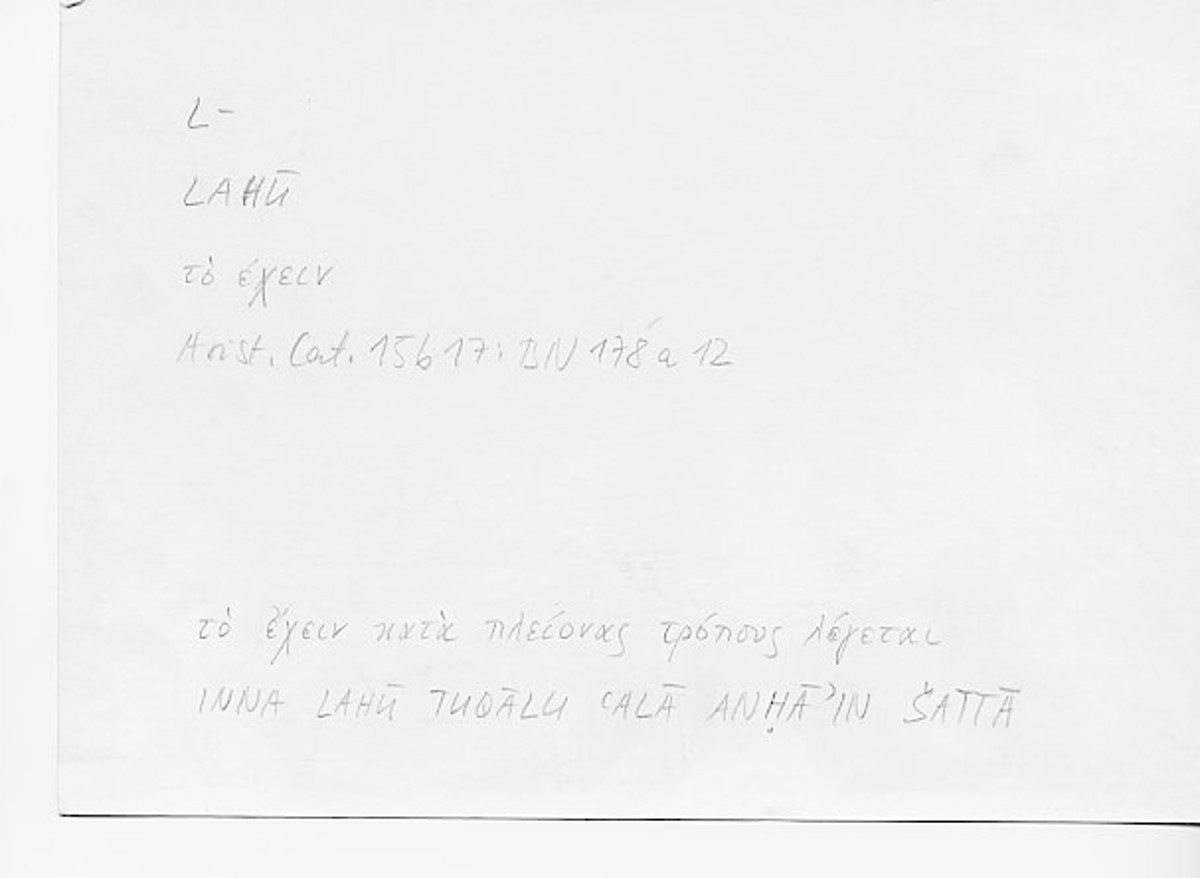 L-
LAHŪ
τὸ ἔχειν
Arist. Cat. 15b17: BN 178 a 12
τὸ ἔχειν κατὰ πλείονας τρόπους λέγεται
INNA LAHŪ TUQĀLU ʿALĀ ANḤĀʾIN ŠATTĀ